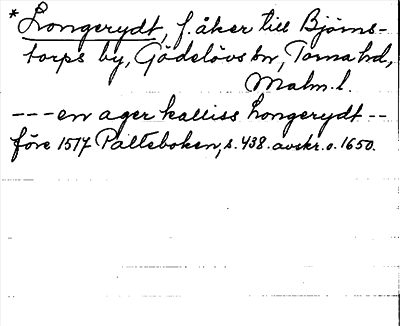 *Longerydt, f. åker till Björns-
torps by, Gödelövs sn, Torna hd,
Malm. l.
---en ager kalliss Longerydt --
före 1517 Palteboken, s. 438. avskr. o. 1650.